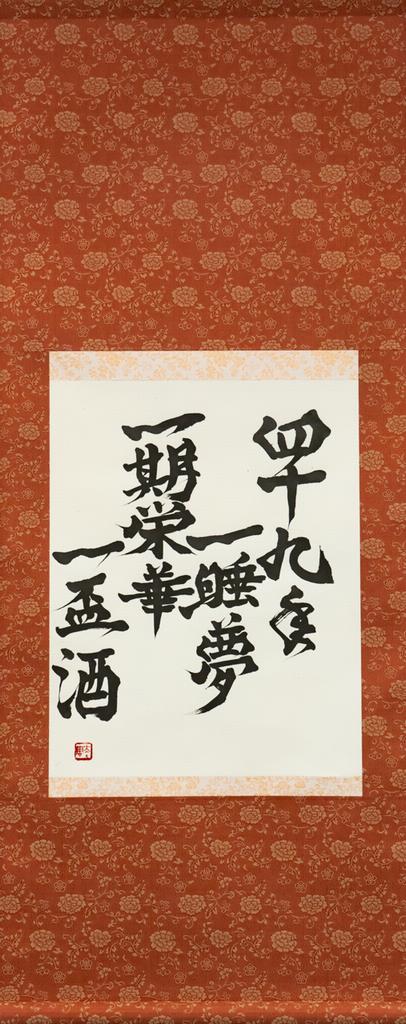 四十九年
一睡夢
一期栄華
一盃酒